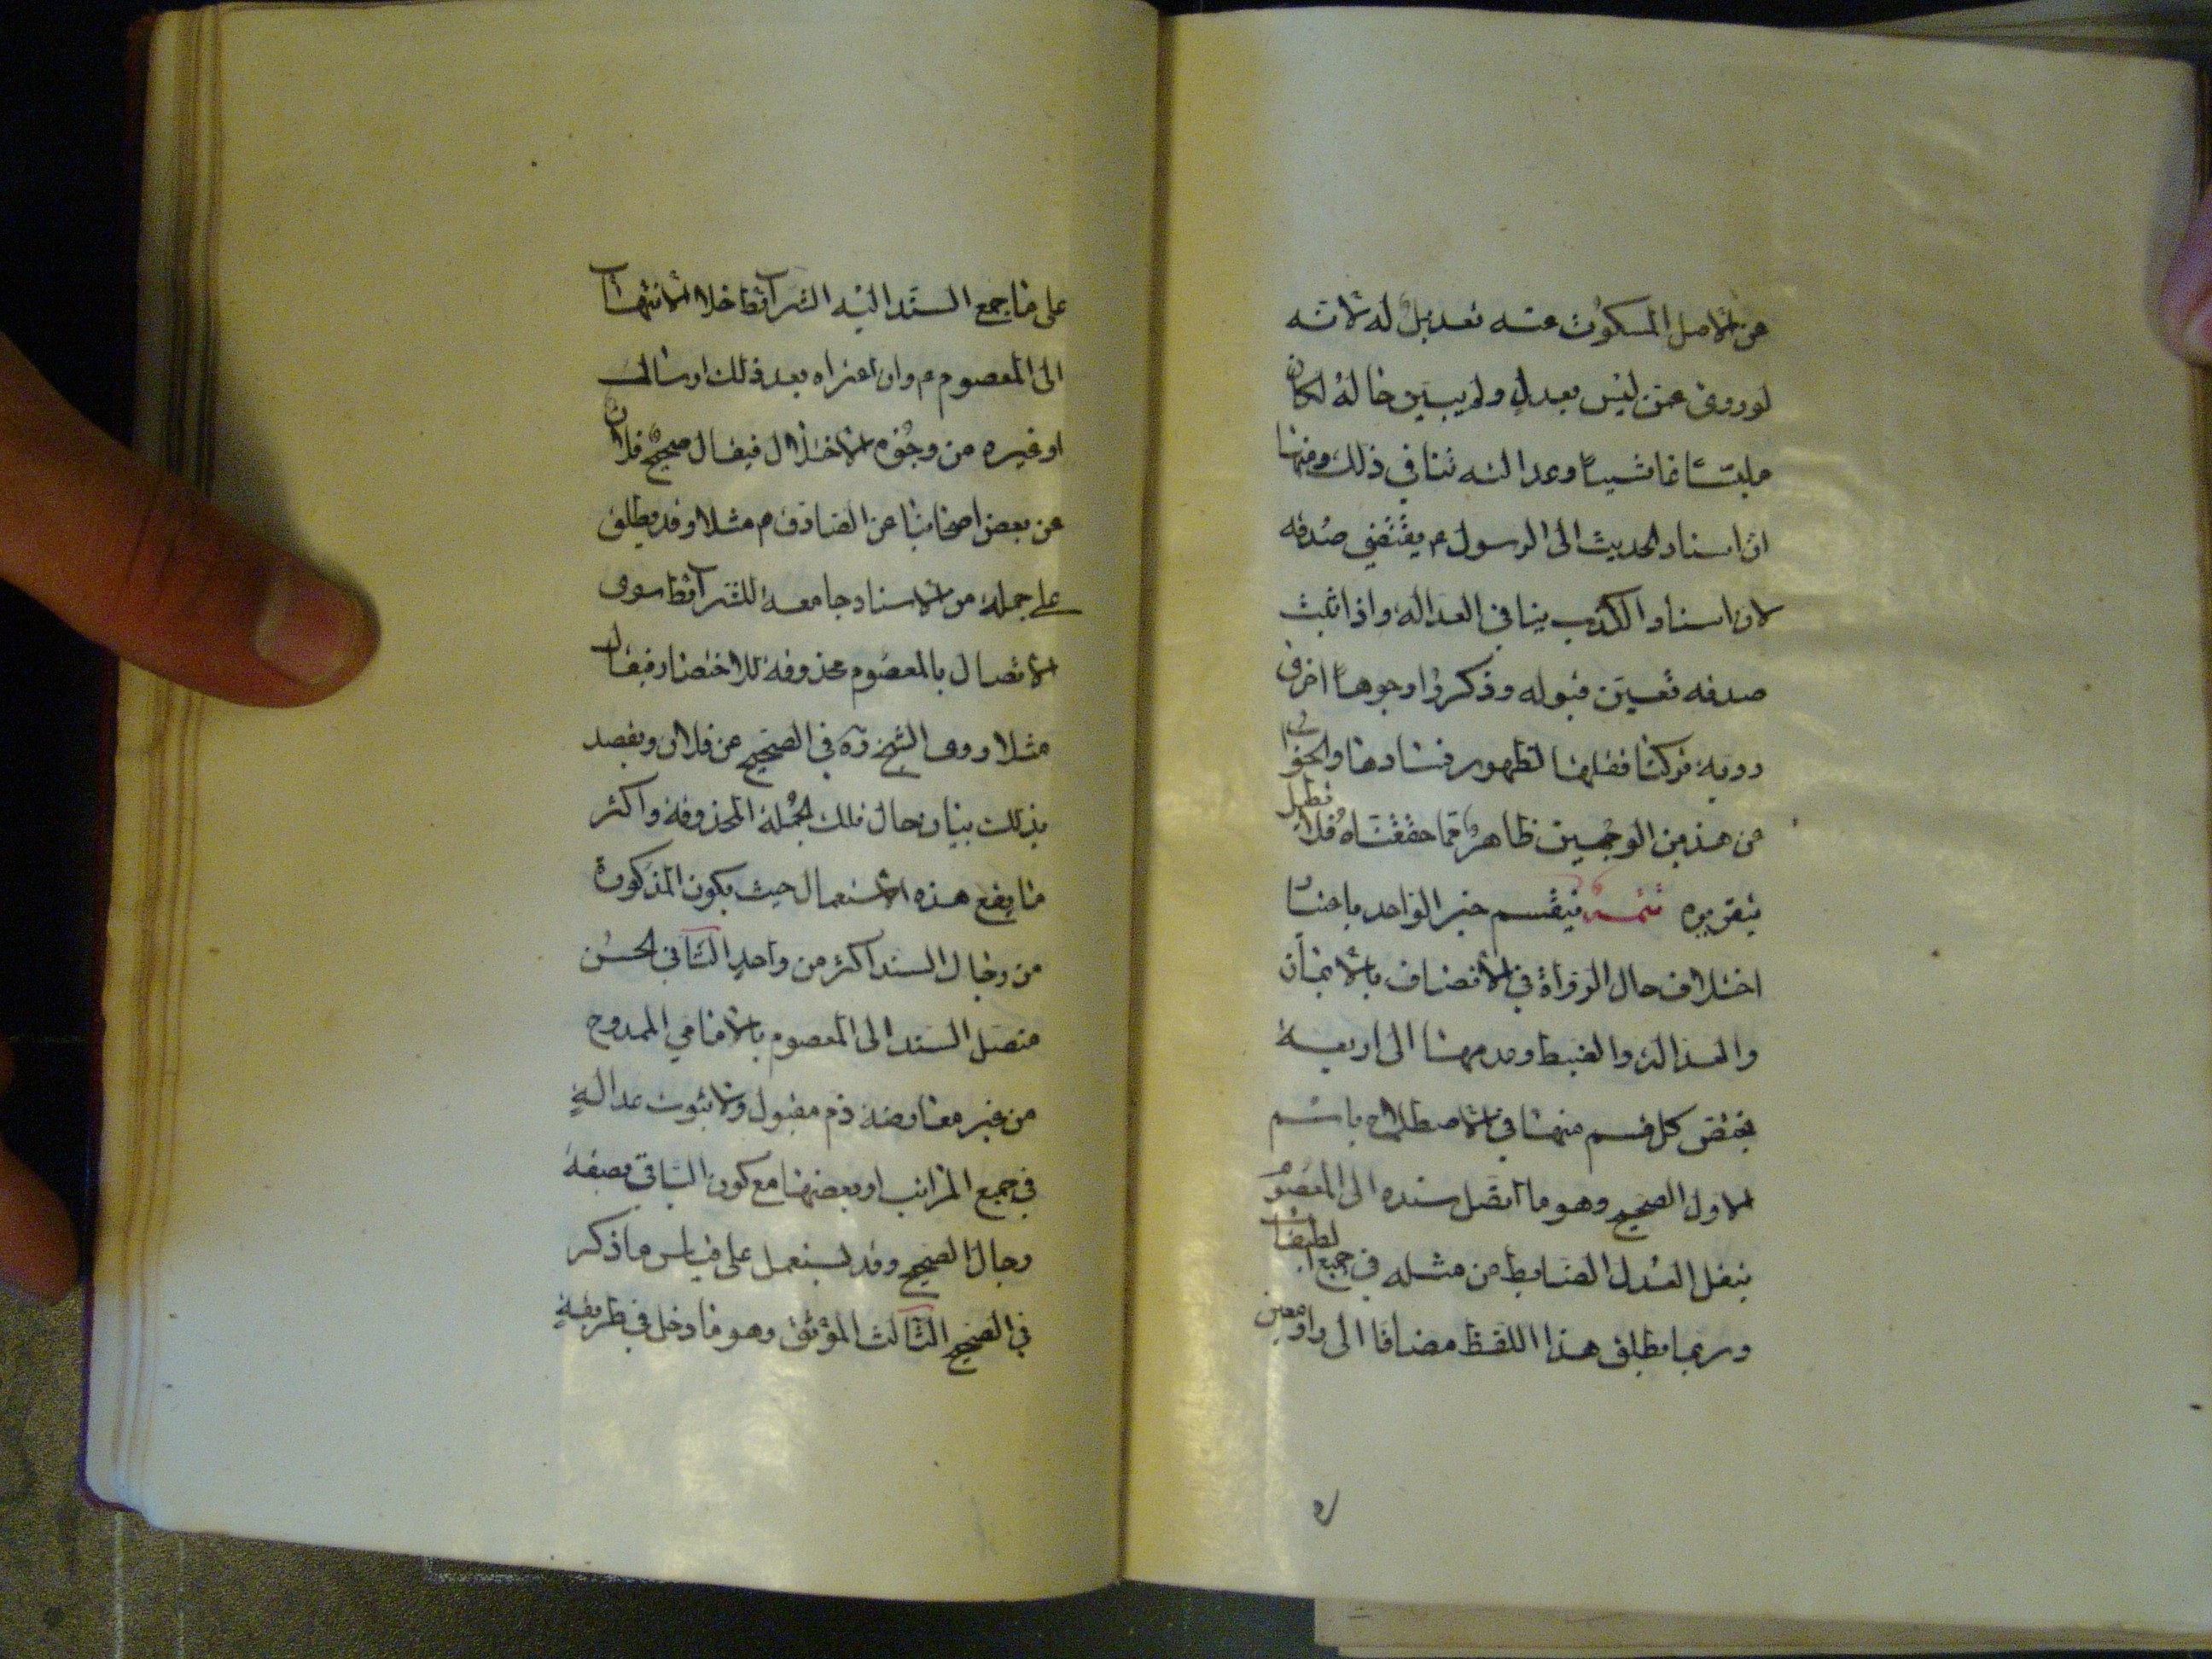 عن الاصل المسكوت عنه تعديل له لانه
لو روى عمن ليس بعدل ولم يبين حاله لكان
ملبسا غاشيا وعدالته تنافي ذلك ومنها
ان اسناد الحديث الى الرسول ع يقتضي صدقه
لان اسناد الكذب ينافي العدالة واذا ثبت
صدقه تعين قبوله وذكروا وجوها اخرى
ردية تركنا نقلها لظهور فسادها والجواب
من هذين الوجهين ظاهر مما حققناه فلا نطيل
بتقريره تتمة ينقسم خبر الواحد باعتبار
اختلاف حال الرواة في الاتصاف بالايمان
والعدالة والضبط وعدمها الى اربعة
يختص كل قسم منها في الاصطلاح باسم
الاول الصحيح وهو ما اتصل سنده الى المعصوم
بنقل العدل الضابط عن مثله في جميع الطبقات
وربما يطلق هذا اللفظ مضافا الى راو معين
على ما جمع السند اليه الشرائط خلا الانتهاء
الى المعصوم ع وان اعتراه بعد ذلك ارسال
او غيره من وجوه الاختلال فيقال صحيح فلان
عن بعض اصحابنا عن الصادق ع مثلا وقد يطلق
على جملة من الاسناد جامعة للشرائط سوى
الاتصال بالمعصوم محذوفة للاختصار فيقال
مثلا روى الشيخ ره في الصحيح عن فلان ويقصد
بذلك بيان حال تلك الجملة المحذوفة واكثر
ما يقع هذه الاستعمال حيث يكون المذكورة
من رجال السند اكثر من واحد الثاني الحسن
متصل السند الى المعصوم بالامامي الممدوح
من غير معارضة ذم مقبول ولا ثبوت عدالة
في جميع المراتب او بعضها مع كون الباقي بصفة
رجال الصحيح وقد يستعمل على قياس ما ذكر
في الصحيح الثالث الموثق وهو ما دخل في طريقه